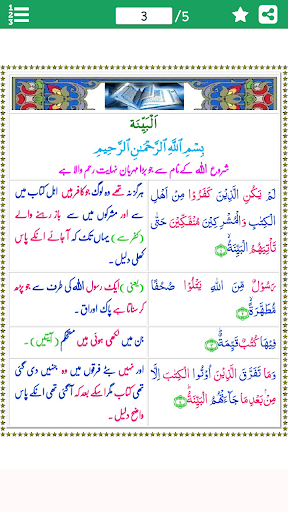 1
2
3
3
/5
اَلْبَيِّنَة
بِسْمِ اللّٰهِ الرَّحْمٰنِ الرَّحِيْمِ
شروع اللہ کے نام سے جو بڑا مہربان نہایت رحم والا ہے
لَمْ يَكُنِ الَّذِيْنَ كَفَرُوْا مِنْ اَهْلِ
الْكِتٰبِ وَالْمُشْرِكِيْنَ مُنْفَكِّيْنَ حَتّٰى
تَاْتِيَهُمُ الْبَيِّنَةُ ۙ
ہرگز نہ تھے وہ لوگ جو کافر ہیں اہل کتاب میں
سے اور مشرکوں میں سے باز رہنے والے
(کفر سے) یہاں تک کہ آ جائے انکے پاس
کھلی دلیل۔
رَسُوْلٌ مِّنَ اللّٰهِ يَتْلُوْا صُحُفًا
مُّطَهَّرَةً ۙ
(یعنی) ایک رسول اللہ کی طرف سے جو پڑھ
کر سناتا ہے پاک اوراق۔
فِيْهَا كُتُبٌ قَيِّمَةٌ ؕ
جن میں لکھی ہوئی ہیں مستحکم (آیتیں)۔
وَمَا تَفَرَّقَ الَّذِيْنَ اُوْتُوا الْكِتٰبَ اِلَّا
مِنْۢ بَعْدِ مَا جَآءَتْهُمُ الْبَيِّنَةُ ؕ
اور نہیں بٹے فرقوں میں وہ جنہیں دی گئی
تھی کتاب مگر اسکے بعد کہ آ گئی تھی انکے پاس
واضح دلیل۔